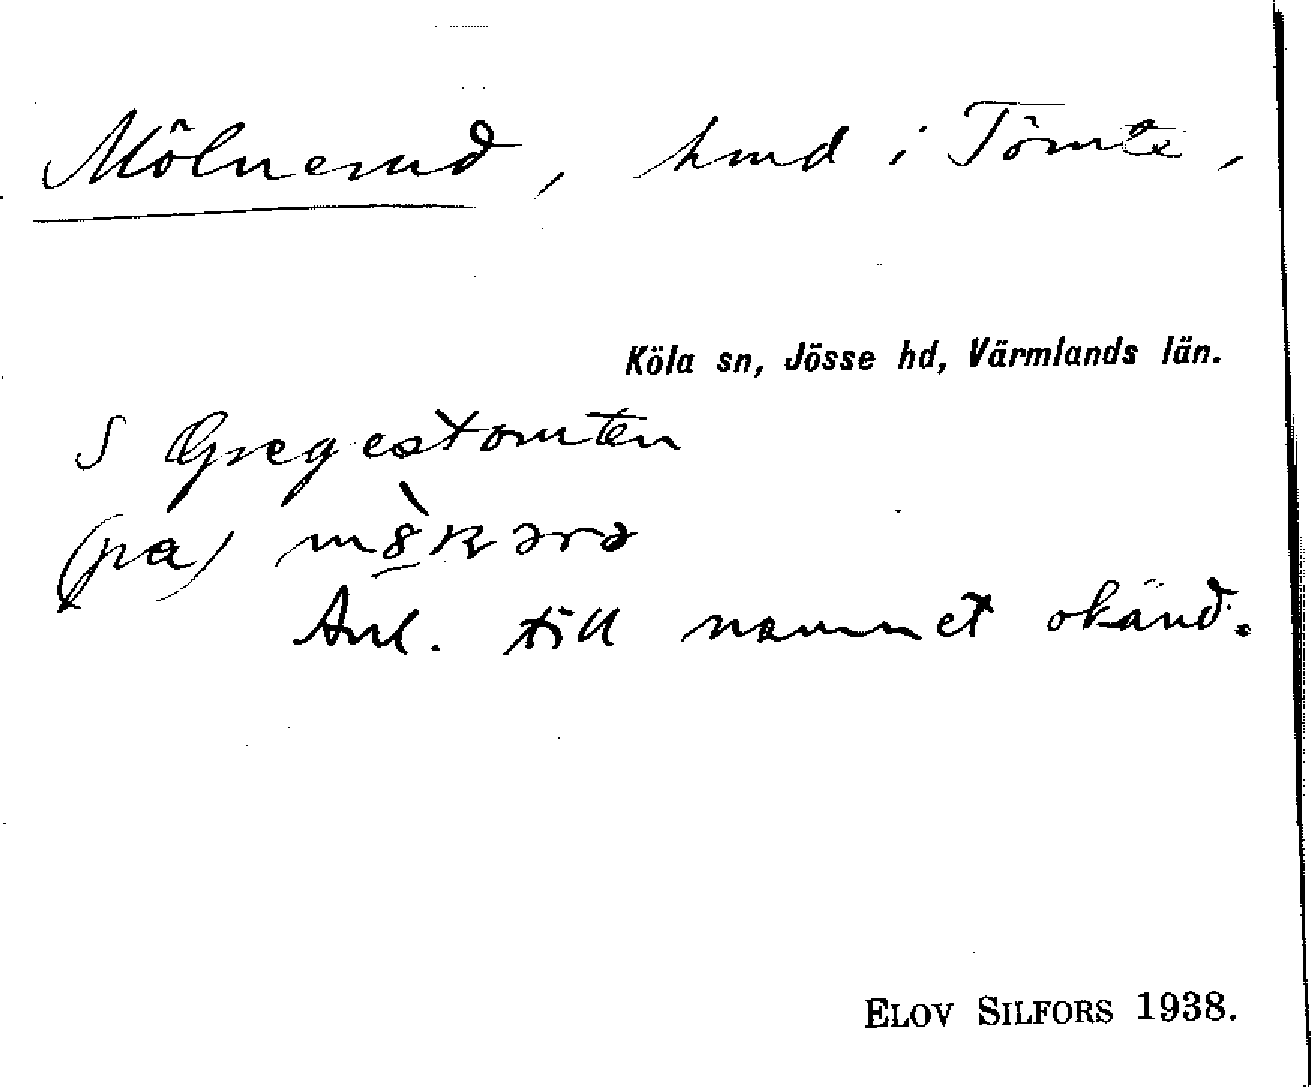 Mölnerud, hmd i Tömte,
Köla sn, Jösse hd, Värmlands län.
S Gregestomten
(på)
Anl. till namnet okänd.
ELOV SILFORS 1938.